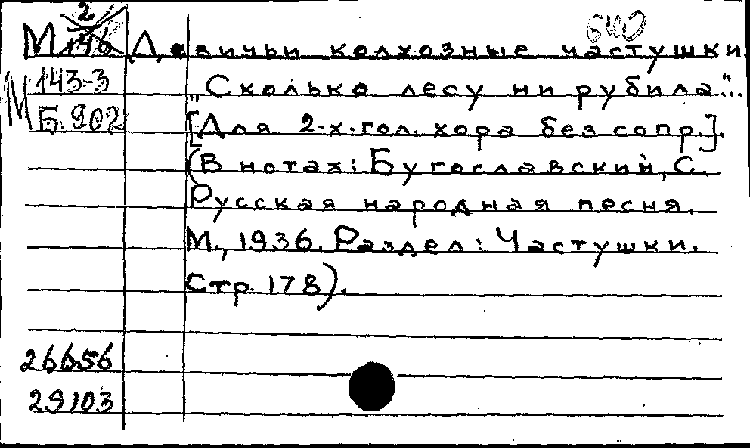 М 2 146 Девичьи колхозные частушки.
М 143-3 „Сколько лесу ни рубила“...
Б. 902 [Для 2-х гол. хора без сопр.].
(В нотах: Бугославский, С.
Русская народная песня.
М., 1936. Раздел: Частушки.
Стр. 178).
26656
29103